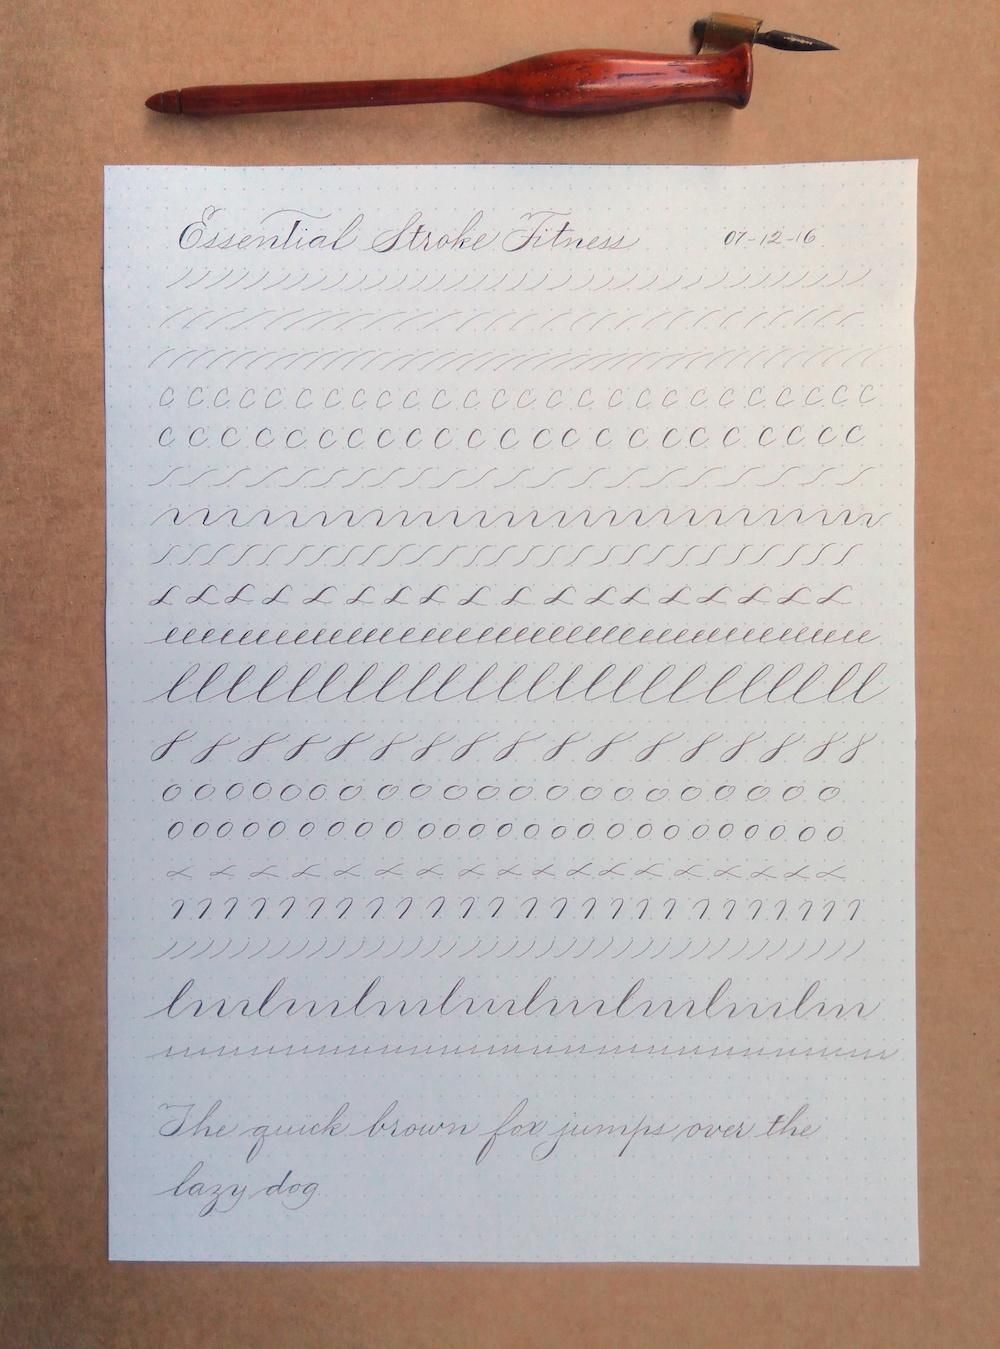 Essential Stroke Fitness 07-12-16
The quick brown fox jumps over the
lazy dog